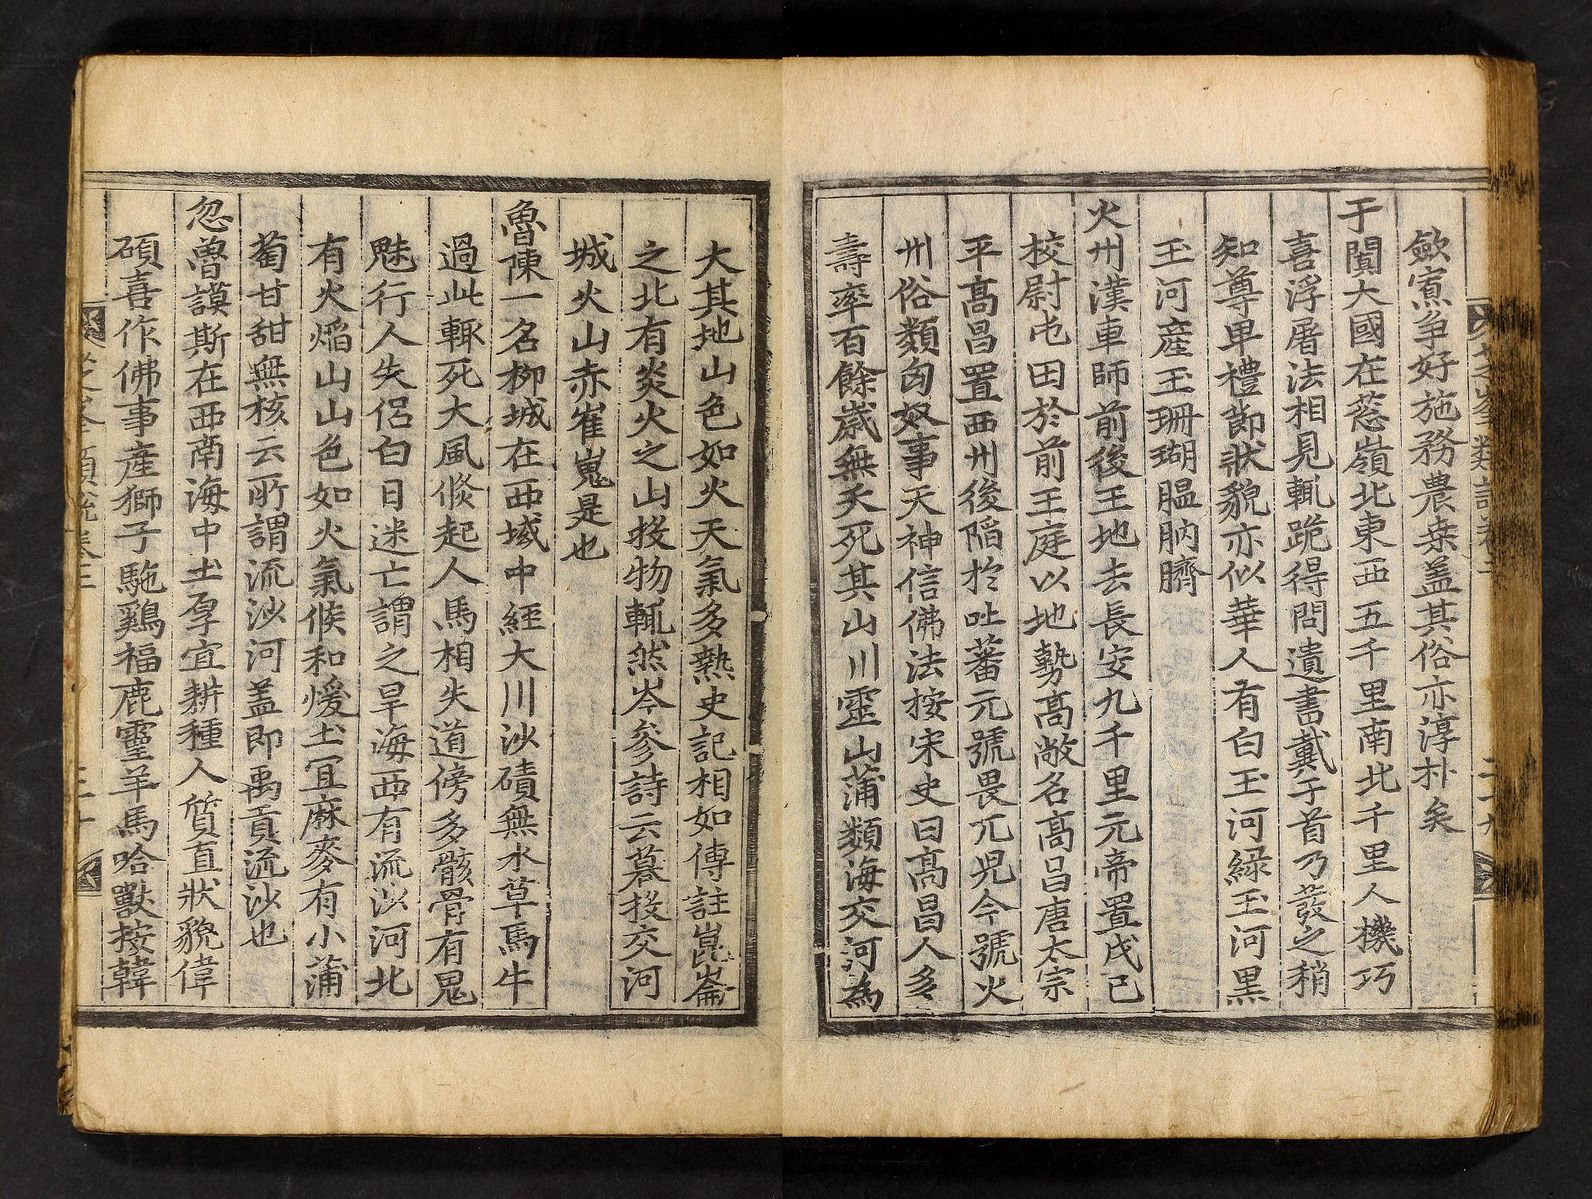 歛寡争好施務農桒盖其俗亦淳朴矣
于闐大國在葱嶺北東西五千里南北千里人機巧
喜浮屠法相見輒跪得問遺書戴于首乃發之稍
知尊卑禮節狀貌亦似華人有白玉河緑玉河黒
玉河産玉珊瑚膃肭臍
火州漢車師前後王地去長安九千里元帝置戊己
校尉屯田於前王庭以地勢髙敞名髙昌唐太宗
平髙昌置西州後陷於吐蕃元號畏兀児今號火
州俗類匈奴事天神信佛法按宋史曰髙昌人多
壽率百餘歲無夭死其山川靈山蒲類海交河為
大其地山色如火天氣多熱史記相如傳註崑崙
之北有炎火之山投物輒然岑參詩云暮投交河
城火山赤崔嵬是也
魯陳一名柳城在西域中經大川沙磧無水草馬牛
過此輙死大風倐起人馬相失道傍多骸骨有鬼
魅行人失侶白日迷亡謂之旱海西有流沙河北
有火焰山山色如火氣候和煖土宜麻麥有小蒲
萄甘甜無核云所謂流沙河盖即禹貢流沙也
忽魯謨斯在西南海中土厚宜耕種人質直狀貌偉
碩喜作佛事産獅子駞鷄福鹿靈羊馬哈獸按韓
芝峯類說卷二
二十九
芝峯類說卷二
三十